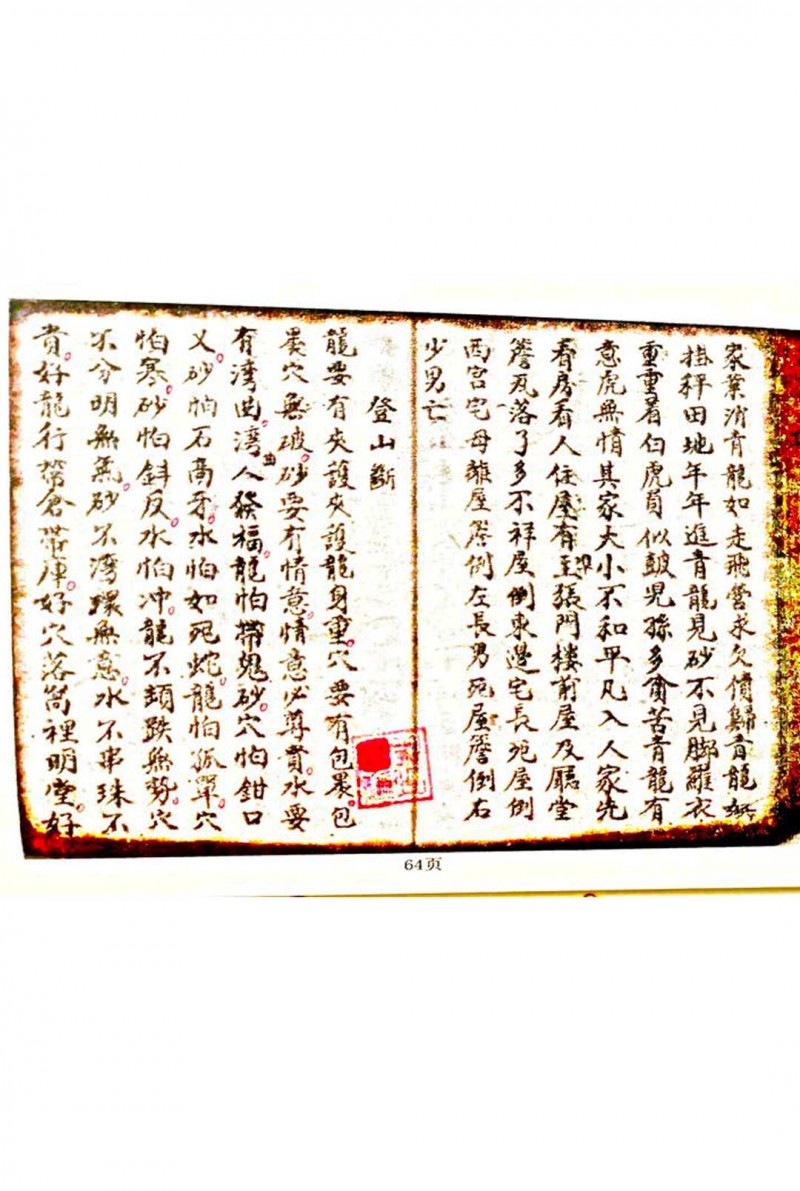 家業消青龍如走飛營求欠債歸青龍如
掛秤田地年年進青龍見砂不見脚離衣
重重看白虎員似皷兒孫多貪苦青龍有
意虎無情其家大小不和平凡入人家先
看房看人住屋有主張門樓前屋及廳堂
簷瓦落了多不祥屋倒東邊宅長死屋倒
西宮宅母離屋簷倒左長男死屋簷倒右
少男亡
登山斷
龍要有夾護夾護龍身重穴要有包裹包
裹穴無破砂要有情意情意必尊貴水要
有湾曲湾曲人發福龍怕帶鬼砂穴怕鉗口
乂砂怕石高牙水怕如死蛇龍怕孤單穴
怕寒砂怕斜反水怕冲龍不頓跌無勢穴
不分明無氣砂不湾環無意水不串珠不
貴好龍行帶倉帶庫好穴落窩裡明堂好
64页